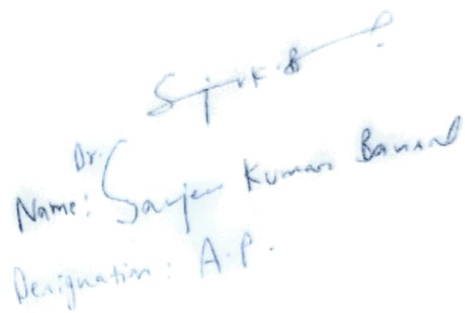 Dr.
Name: Sanjeev Kumar Bansal
Designation: A.P.